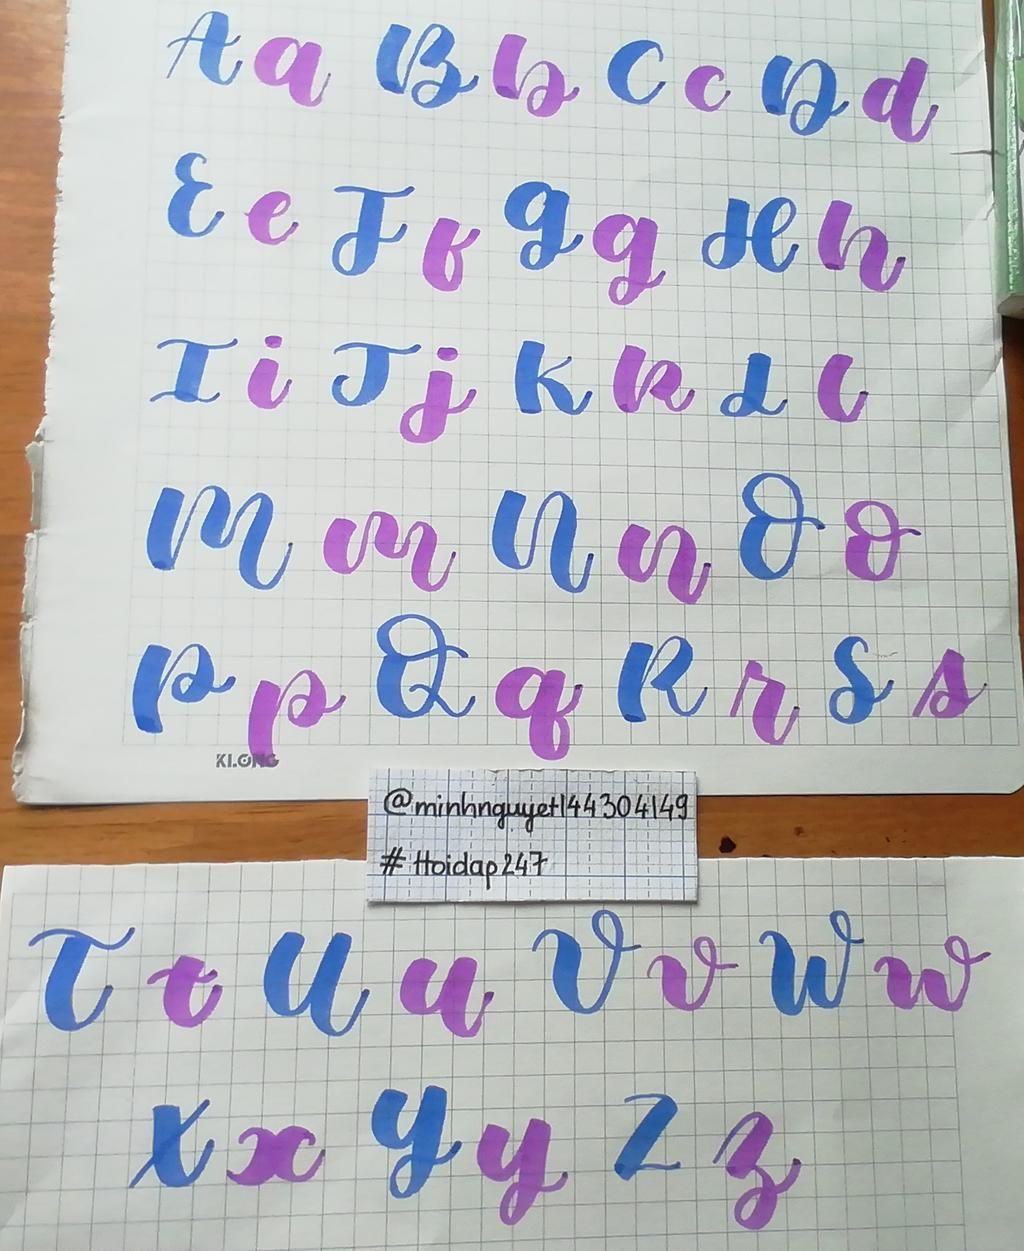 A a B b C c D d
E e F f G g H h
I i J j K k L l
M m N n O o
P p Q q R r S s
KLONG
@minhnguyet144304149
# Hoidap247
T t U u V v W w
X x Y y Z z